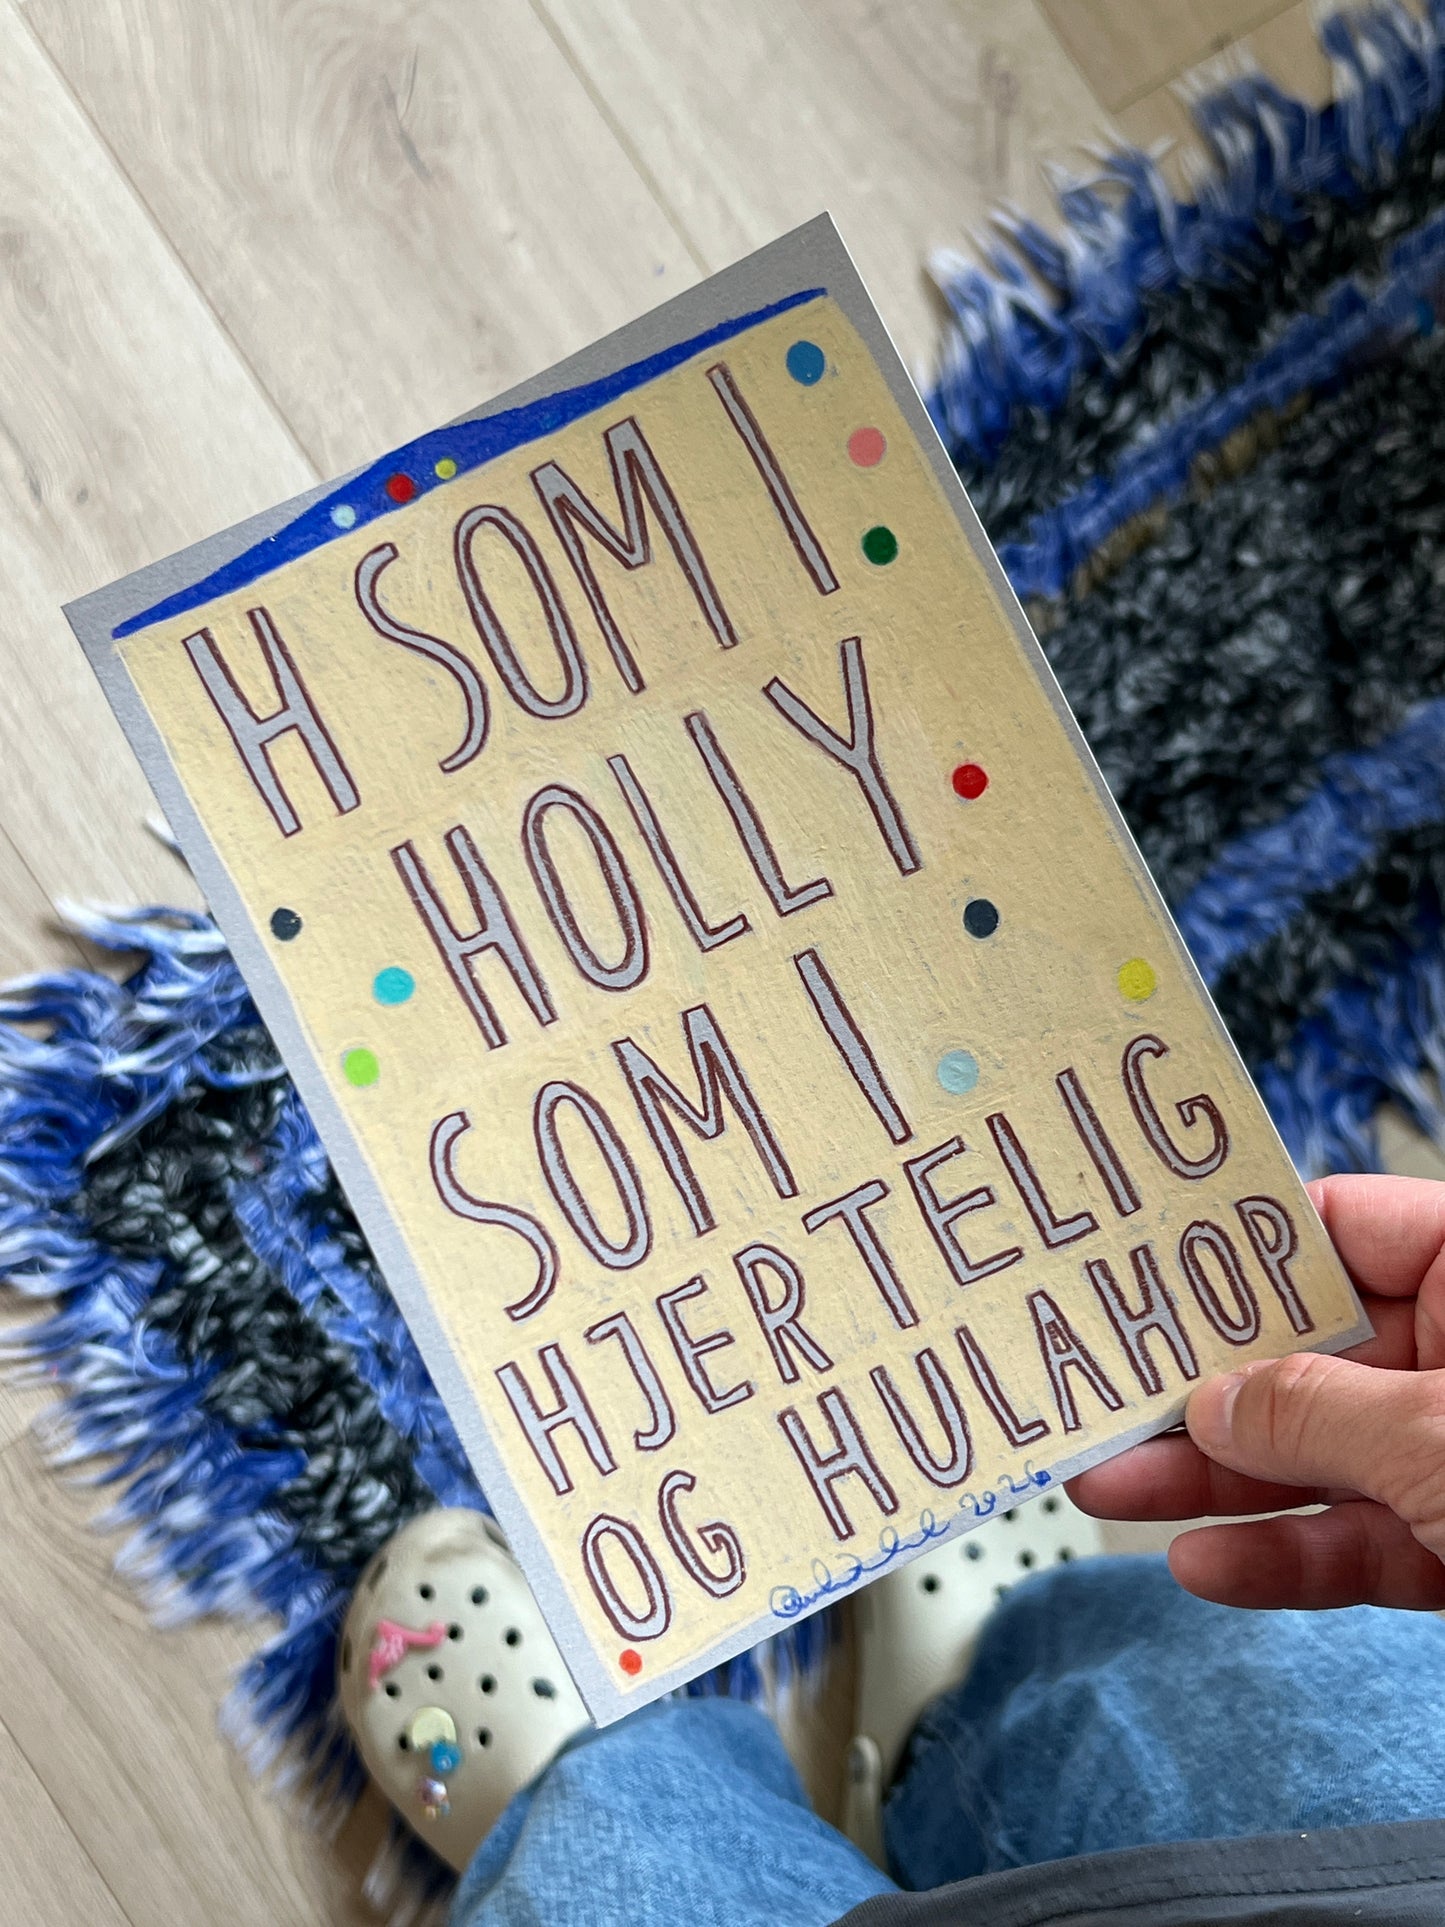 H SOM I
HOLLY
SOM I
HJERTELIG
OG HULAHOP
2026